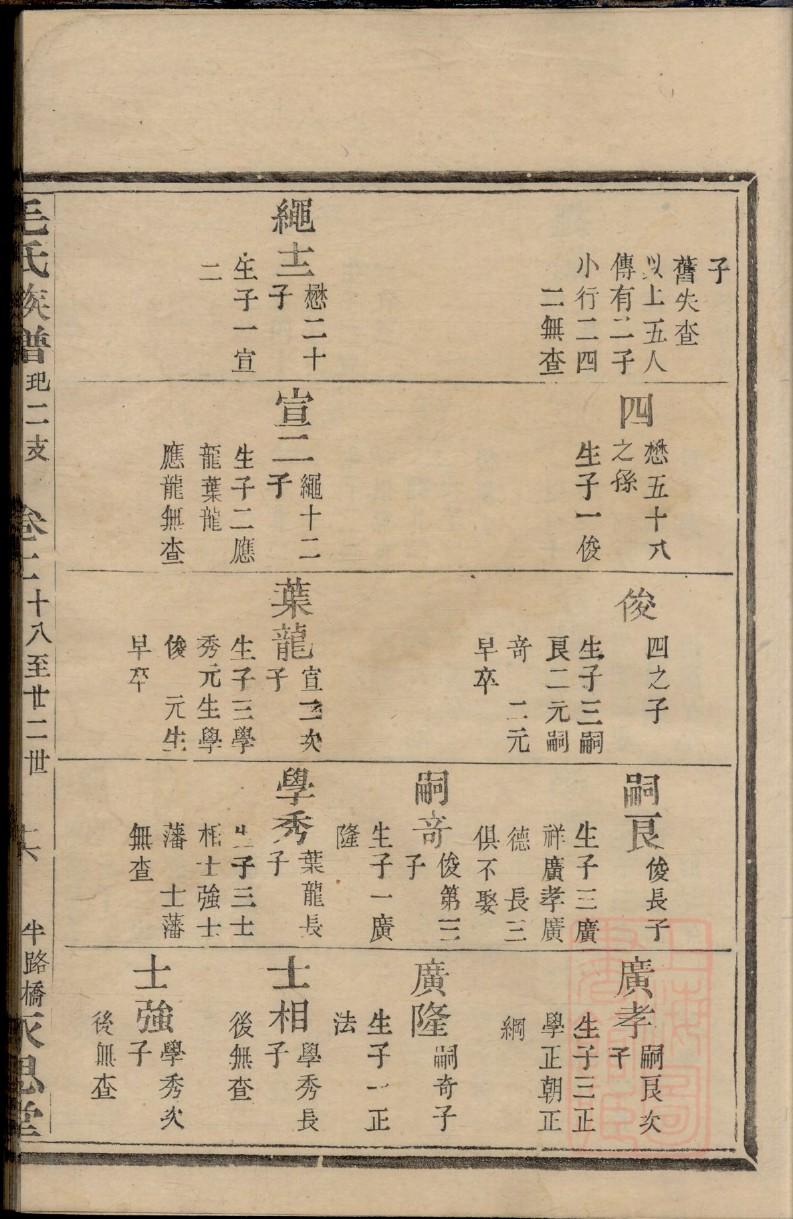 子
舊失查
以上五人
傳有二子
小行二四
二無查
繩十二
懋二十
子
生子一宣
二
四
懋五十八
之孫
生子一俊
宣二
繩十二
子
生子二應
龍葉龍
應龍無查
俊
四之子
生子三嗣
良二元嗣
竒 二元
早卒
葉龍
宣二次
子
生子三學
秀元生學
俊 元生
早卒
嗣良
俊長子
生子三廣
祥廣孝廣
德 長三
俱不娶
嗣竒
俊第三
子
生子一廣
隆
學秀
葉龍長
子
生子三士
相士強士
藩 士藩
無查
廣孝
嗣良次
子
生子三正
學正朝正
綱
廣隆
嗣奇子
生子一正
法
士相
學秀長
子
後無查
士強
學秀次
子
後無查
毛氏族譜 玘二支 卷二 十八至廿二世 十六 半路橋永思堂